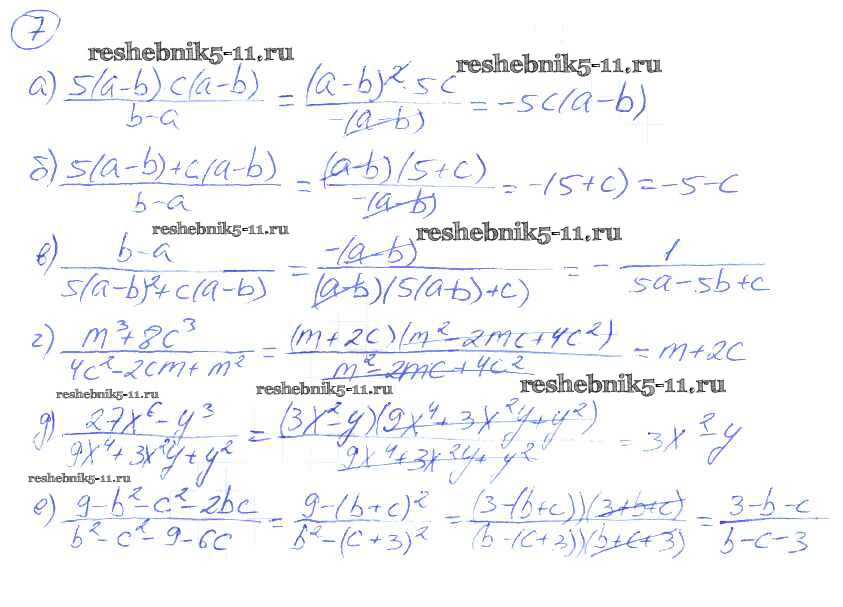 7
reshebnik5-11.ru
reshebnik5-11.ru
а) 5(a-b)c(a-b)/(b-a) = (a-b)²·5c/(-(a-b)) = -5c(a-b)
б) (5(a-b)+c(a-b))/(b-a) = (a-b)(5+c)/(-(a-b)) = -(5+c) = -5-c
reshebnik5-11.ru
reshebnik5-11.ru
в) (b-a)/(5(a-b)²+c(a-b)) = -(a-b)/((a-b)(5(a-b)+c)) = -1/(5a-5b+c)
г) (m³+8c³)/(4c²-2cm+m²) = (m+2c)(m²-2mc+4c²)/(m²-2mc+4c²) = m+2c
reshebnik5-11.ru
reshebnik5-11.ru
reshebnik5-11.ru
д) (27x⁶-y³)/(9x⁴+3x²y+y²) = (3x²-y)(9x⁴+3x²y+y²)/(9x⁴+3x²y+y²) = 3x²-y
reshebnik5-11.ru
е) (9-b²-c²-2bc)/(b²-c²-9-6c) = (9-(b+c)²)/(b²-(c+3)²) = (3-(b+c))(3+b+c)/((b-(c+3))(b+c+3)) = (3-b-c)/(b-c-3)